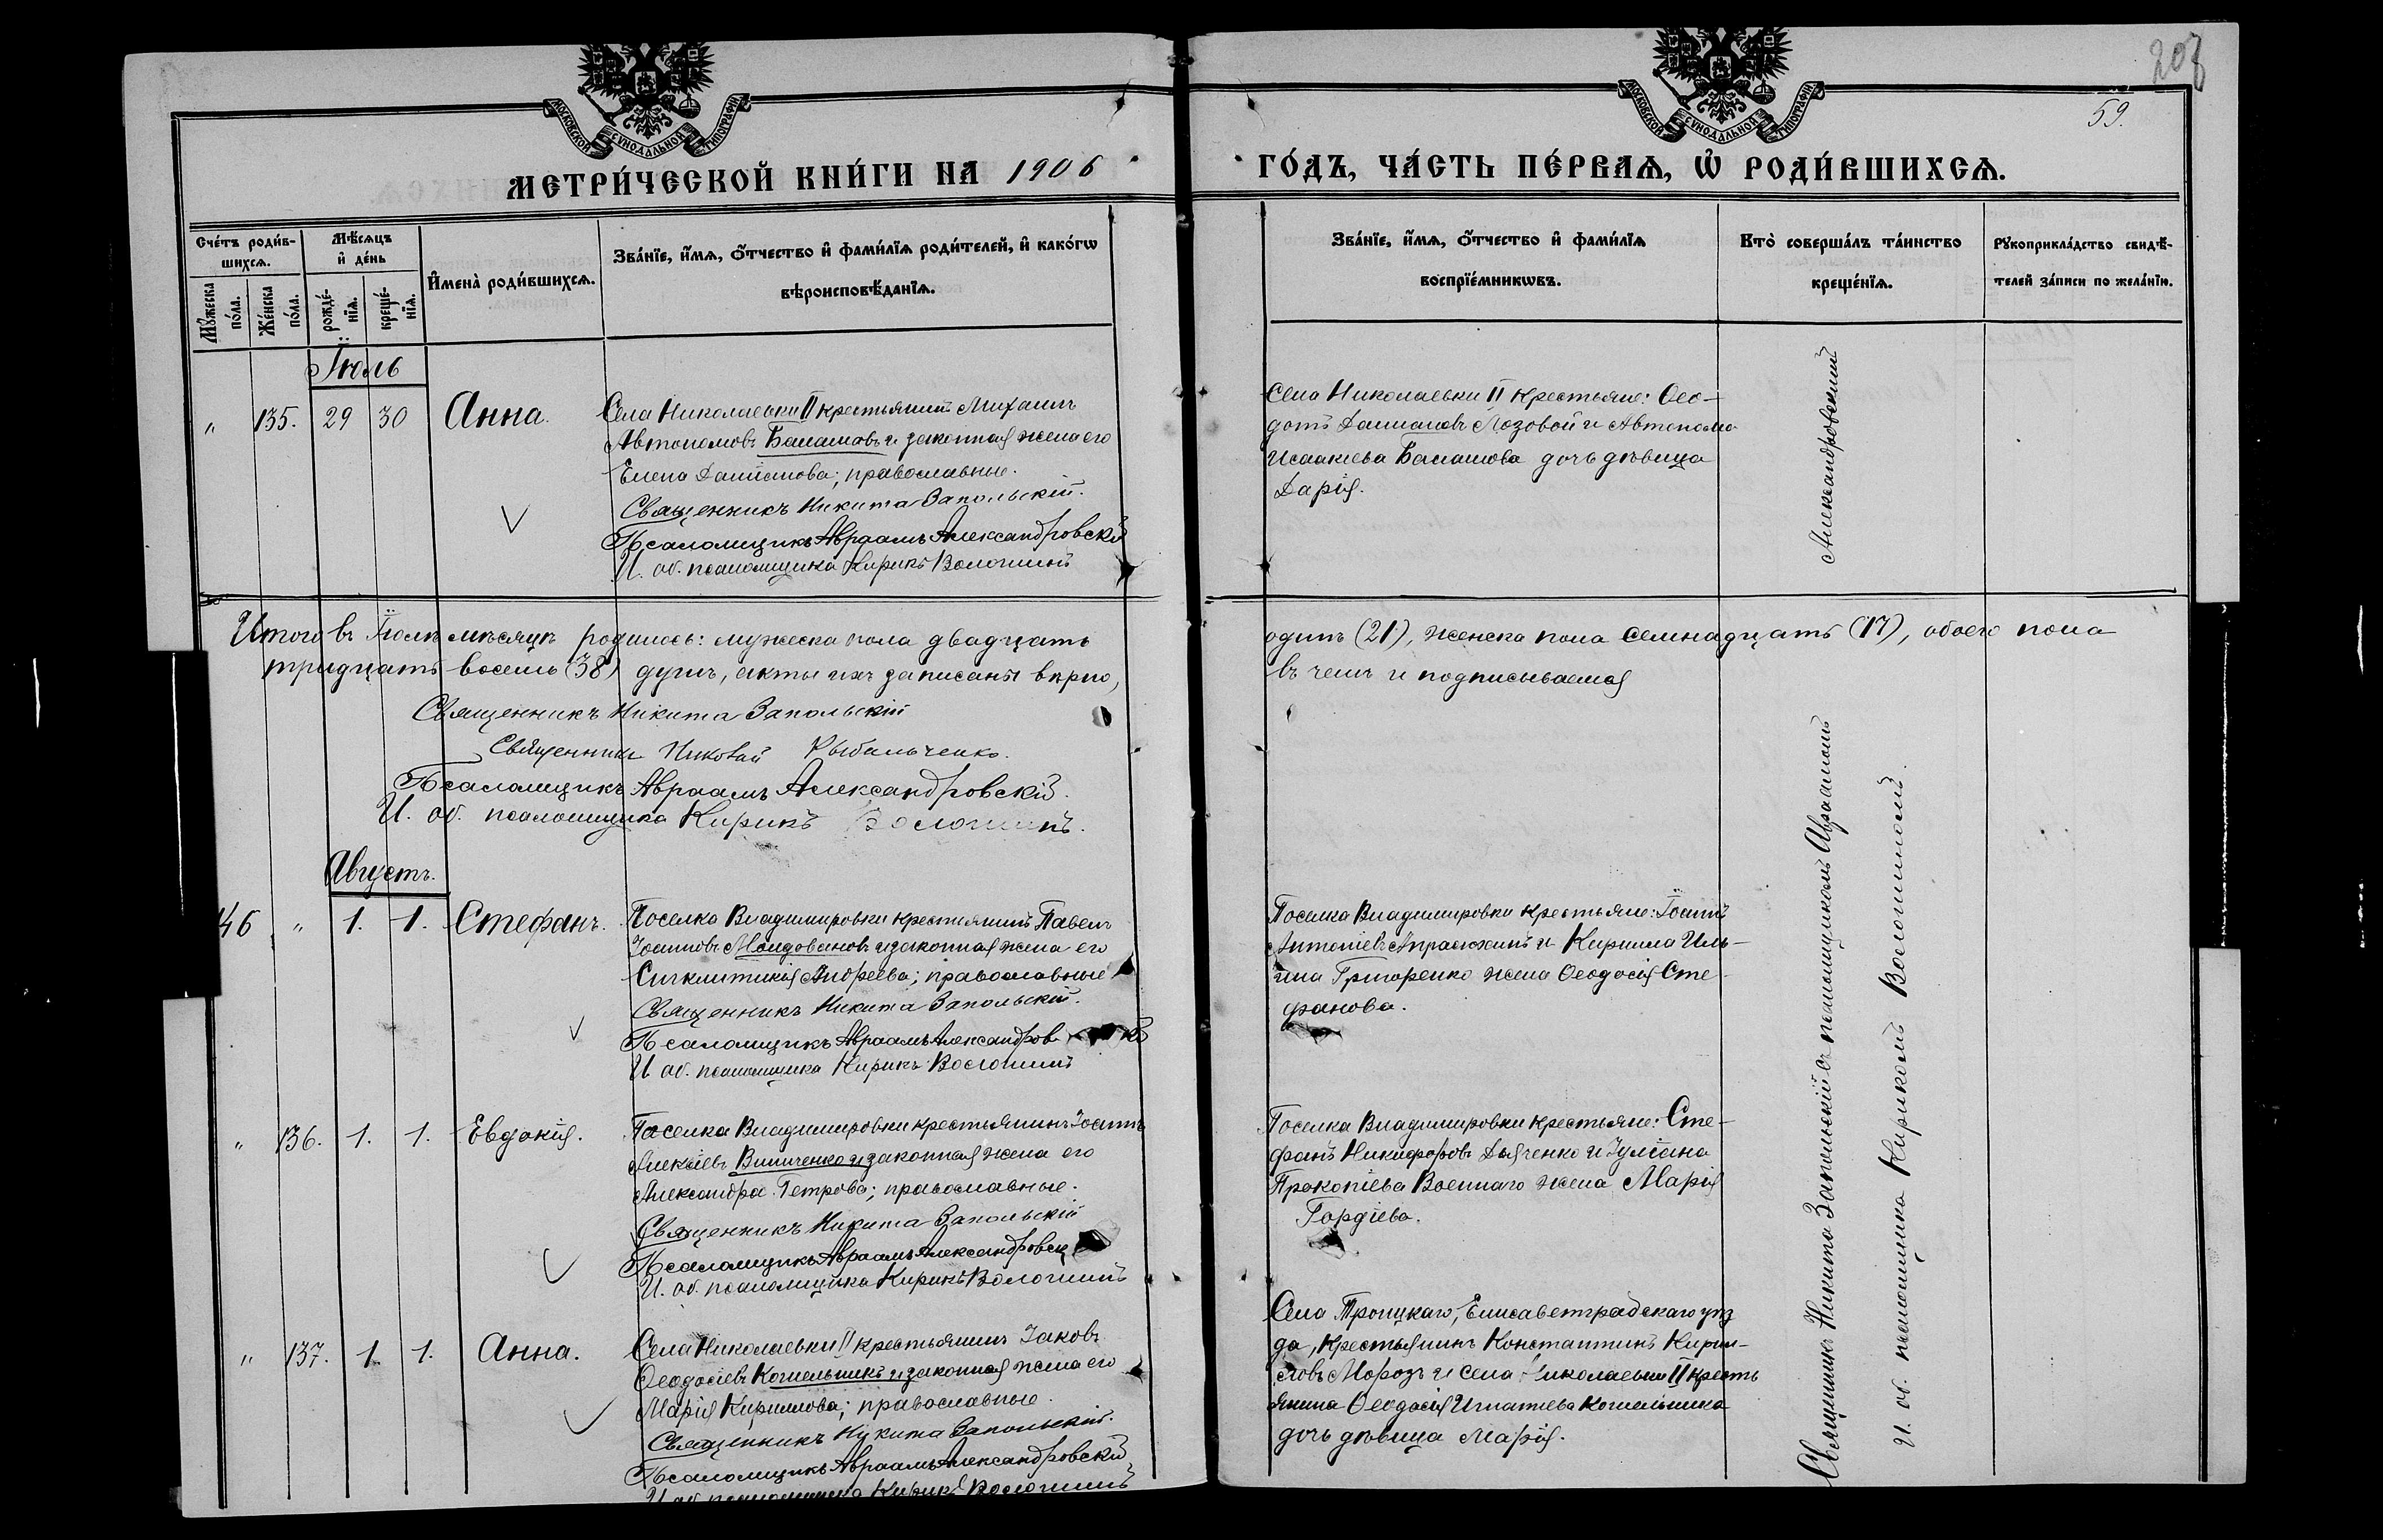 208
59.
МОСКОВСКОЙ СѴНОДАЛЬНОЙ ТИПОГРАФІИ
МОСКОВСКОЙ СѴНОДАЛЬНОЙ ТИПОГРАФІИ
МЕТРИ́ЧЕСКОЙ КНИ́ГИ НА 1906
ГО́ДЪ, ЧА́СТЬ ПЕ́РВАѦ, Ѡ҆ РОДИ́ВШИХСѦ.
Сче́тъ роди́в-
шихсѧ.
Мꙋ́жеска
по́ла.
Же́нска
по́ла.
Мѣ́сѧцъ
и҆ де́нь
рожде́-
нїѧ.
креще́-
нїѧ.
И҆мена̀ роди́вшихсѧ.
Зва́нїе, и҆́мѧ, ѻ҆́тчество и҆ фами́лїѧ роди́телей, и҆ како́гѡ
вѣроисповѣ́данїѧ.
Зва́нїе, и҆́мѧ, ѻ҆́тчество и҆ фами́лїѧ
воспрїе́мникѡвъ.
Кто̀ соверша́лъ та́инство
креще́нїѧ.
Рꙋкоприкла́дство свидѣ́-
телей за́писи по жела́нїю.
Іюль
" 135. 29 30 Анна.
Села Николаевки II крестьянинъ Михаилъ
Автономовъ Балашовъ и законная жена его
Елена Даміанова; православные.
Священникъ Никита Запольскій.
Псаломщикъ Авраамъ Александровскій
И. об. псаломщика Кирикъ Волошинъ
Села Николаевки II крестьяне: Ѳео-
дотъ Даміановъ Лозовой и Автонома
Исаакіева Балашова дочь дѣвица
Дарія.
Александровскій
Итого въ Іюлѣ мѣсяцѣ родилось: мужеска пола двадцать
одинъ (21), женска пола семнадцать (17), обоего пола
тридцать восемь (38) душъ, акты ихъ записаны вѣрно,
въ чемъ и подписываемся
Священникъ Никита Запольскій
Священникъ Николай Рыбальченко.
Псаломщикъ Авраамъ Александровскій.
И. об. псаломщика Кирикъ Волошинъ.
Августъ.
146 " 1. 1. Стефанъ.
Поселка Владимировки крестьянинъ Павелъ
Іоанновъ Молдовановъ и законная жена его
Синклитикія Андреева; православные
Священникъ Никита Запольскій.
Псаломщикъ Авраамъ Александров
И об. псаломщика Кирикъ Волошинъ
Поселка Владимировки крестьяне: Іоаннъ
Антоніевъ и Кирилла Иль-
ина Григоренко жена Ѳеодосія Сте-
фанова.
" 136. 1. 1. Евдокія.
Поселка Владимировки крестьянинъ Іоаннъ
Алексіевъ Винниченко и законная жена его
Александра Петрова; православные.
Священникъ Никита Запольскій
Псаломщикъ Авраамъ Александровск
И. об. псаломщика Кирикъ Волошинъ
Поселка Владимировки крестьяне: Сте-
фанъ Никифоровъ Дьяченко и Іуліана
Прокопіева Военнаго жена Марія
Гордіева.
" 137. 1. 1. Анна.
Села Николаевки II крестьянинъ Іаковъ
Ѳеодосіевъ Кошельникъ и законная жена его
Марія Кириллова; православные.
Священникъ Никита Запольскій.
Псаломщикъ Авраамъ Александровскій
И об. псаломщика Кирикъ Волошинъ
Села Троицкаго, Елисаветградскаго уѣз
да, крестьянинъ Константинъ Кирил-
ловъ Морозъ и села Николаевки II кресть
янина Ѳеодосія Игнатіева Кошельника
дочь дѣвица Марія.
Священникъ Никита Запольскій съ псаломщикомъ Авраамомъ
И. об. псаломщика Кирикомъ Волошиномъ.